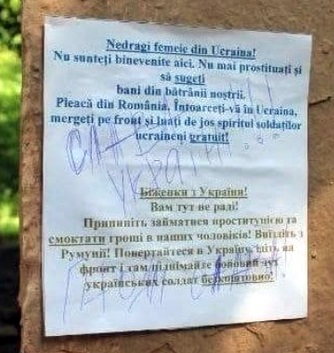 Nedragi femeie din Ucraina!
Nu sunteți binevenite aici. Nu mai prostituați și
să sugeti
bani din bătrânii noștrii.
Pleacă din România, Întoarceți-vă in Ucraina,
mergeți pe front și luați de jos spiritul soldaților
ucraineni gratuit!
Біженки з України!
Вам тут не раді!
Припиніть займатися проституцією та
смоктати гроші в наших чоловіків! Виїдіть з
Румунії! Повертайтеся в Україну, ідіть на
фронт і там піднімайте бойовий дух
українських солдат безкоштовно!